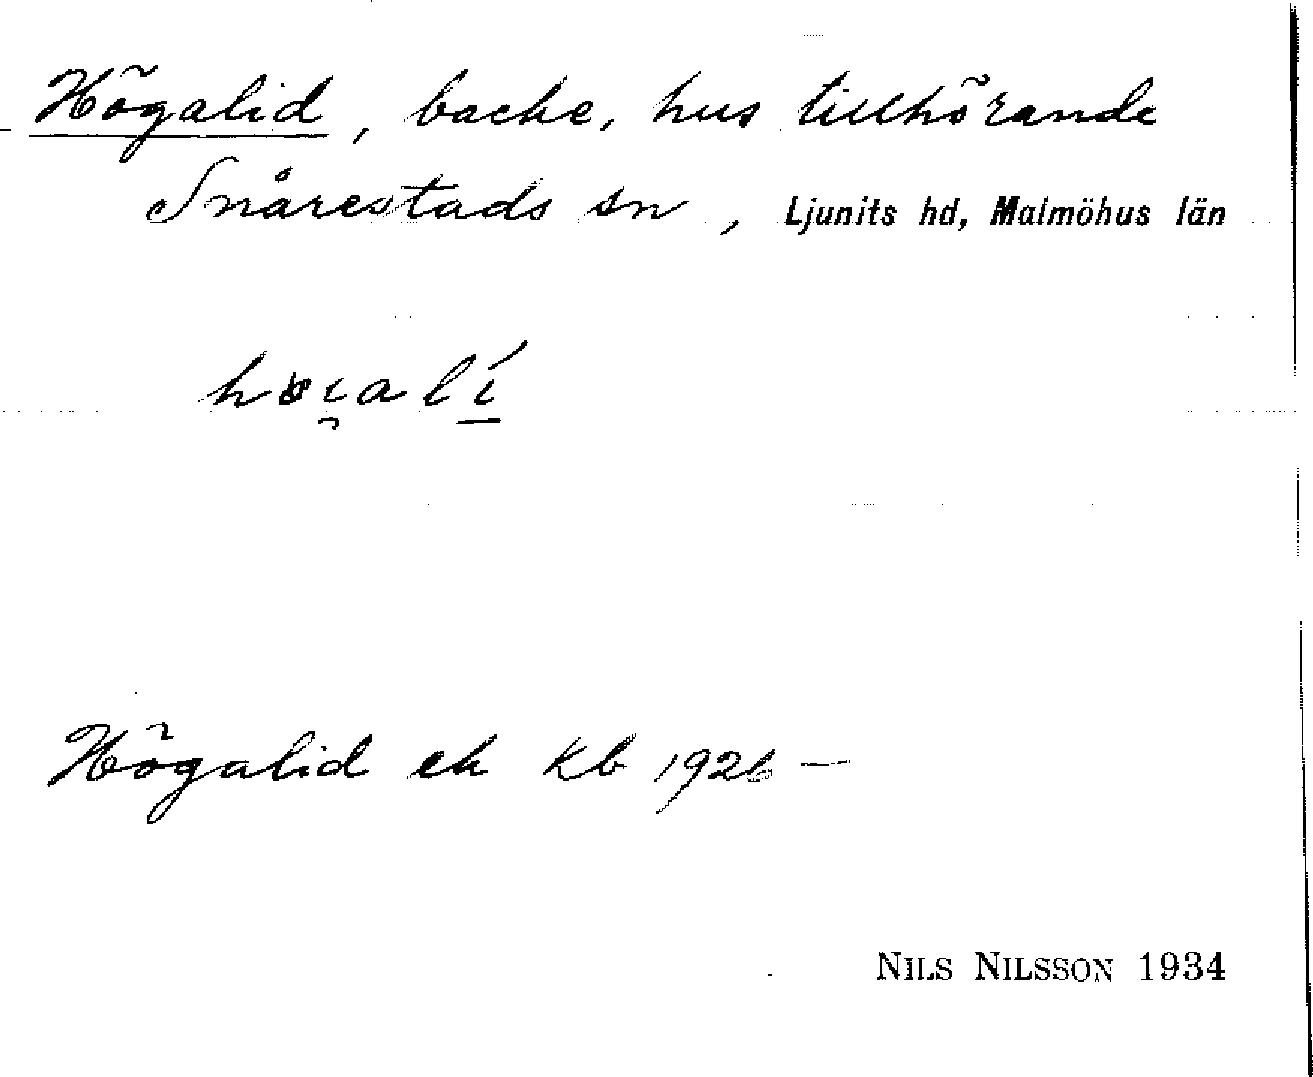 Högalid, backe, hus tillhörande
Snårestads sn, Ljunits hd, Malmöhus län
Högalid ek kb 1926 —
NILS NILSSON 1934